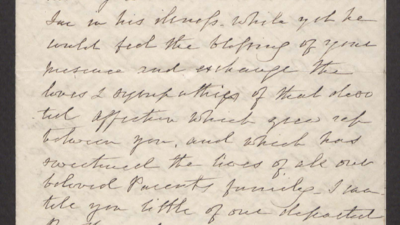 in his illness, while yet he
could feel the blessing of your
presence and exchange the
loves & sympathies of that devo
ted affection which grew up
between you, and which has
sweetened the lives of all our
beloved Parents family. I can
tell you little of our departed